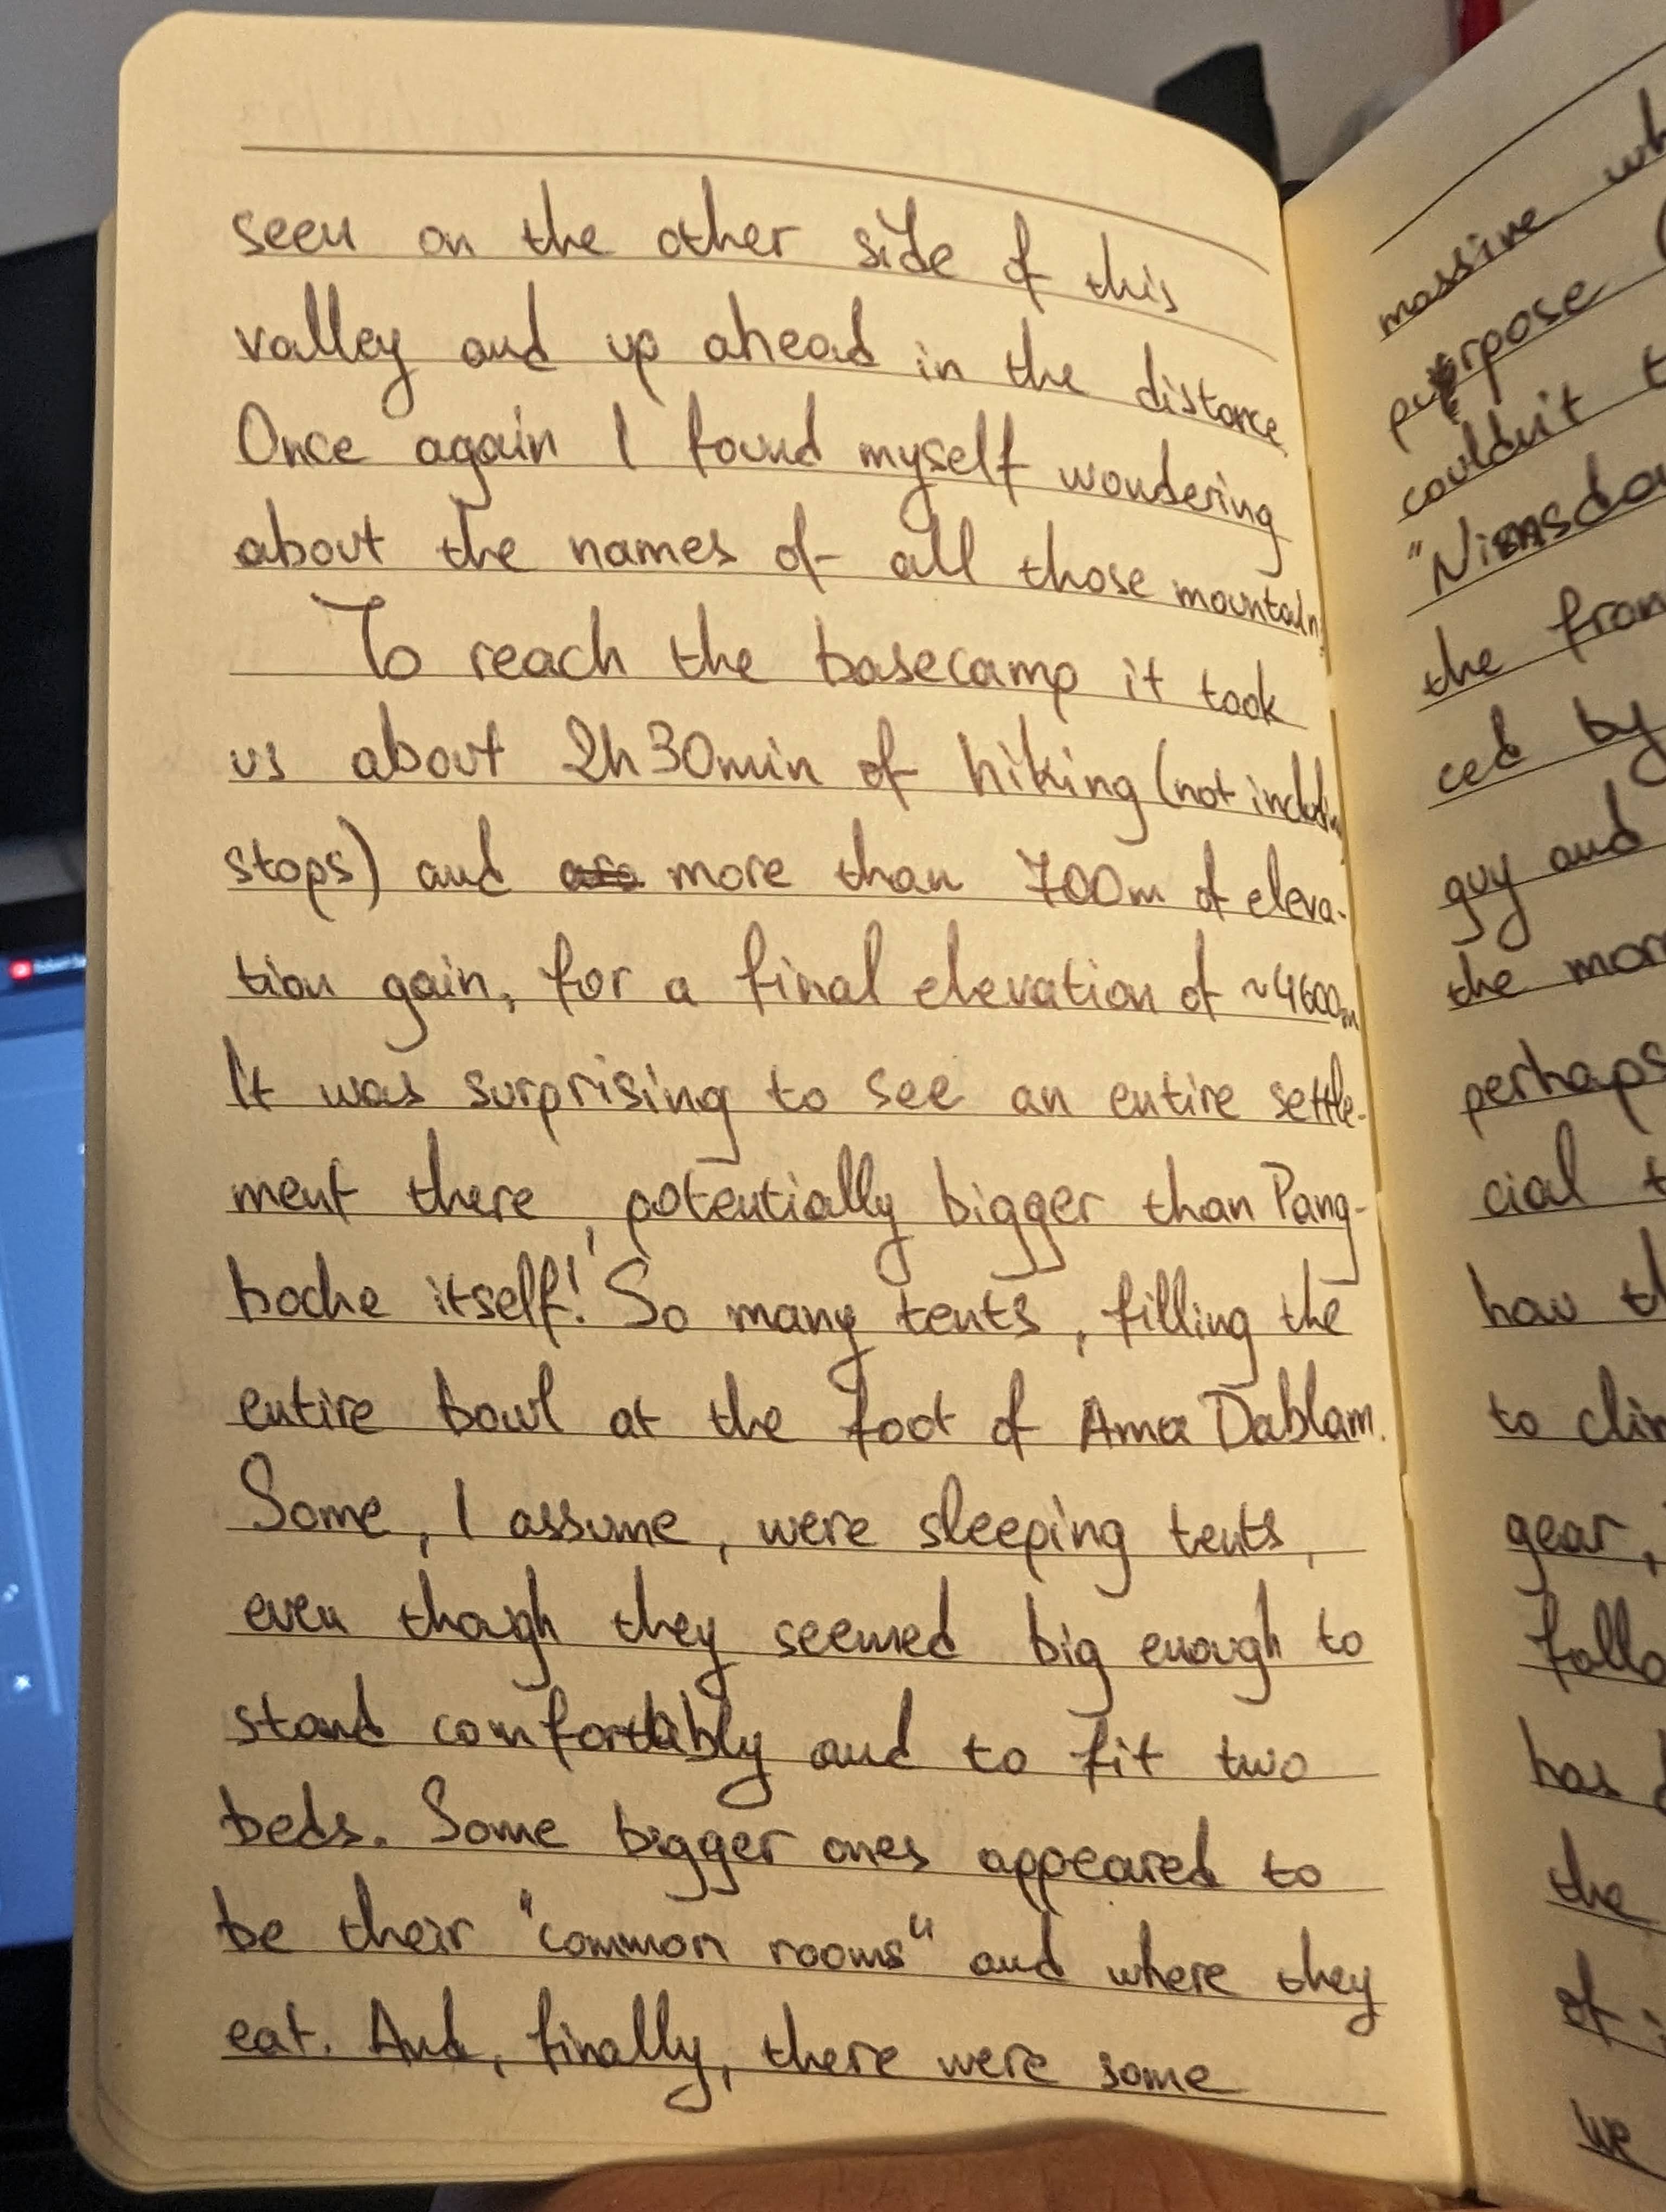 seen on the other side of this
valley and up ahead in the distance
Once again I found myself wondering
about the names of all those mountain
To reach the basecamp it took
us about 2h30min of hiking (not includin
stops) and more than 700m of eleva-
tion gain, for a final elevation of ~4600m
It was surprising to see an entire settle-
ment there, potentially bigger than Pang-
boche itself! So many tents, filling the
entire bowl at the foot of Ama Dablam.
Some, I assume, were sleeping tents,
even though they seemed big enough to
stand comfortably and to fit two
beds. Some bigger ones appeared to
be their "common rooms" and where they
eat. And, finally, there were some
massive wh
purpose (
couldn't t
the fron
ced by
guy and
the mor
perhaps
cial t
how th
to clim
gear,
follo
has
the
of
we